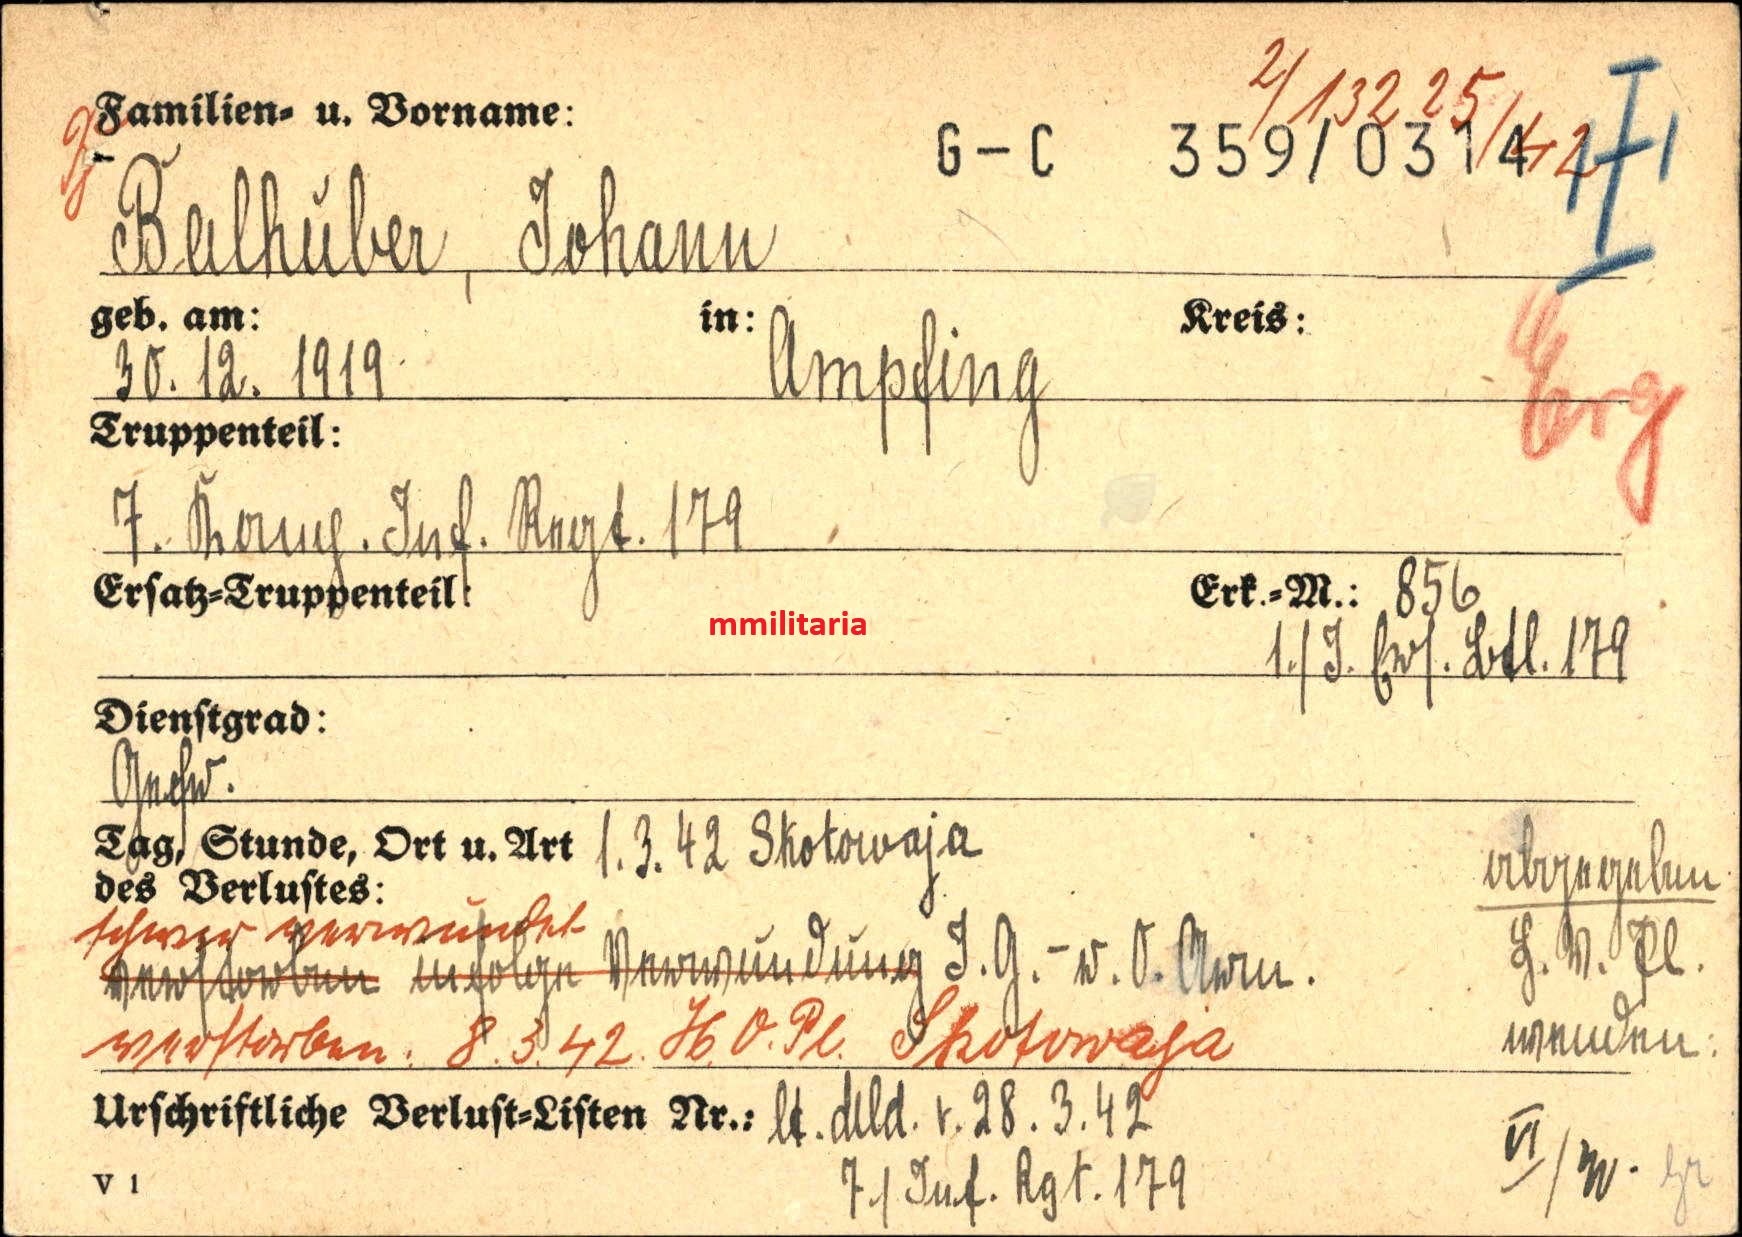 2/13225/42
Familien- u. Vorname:
G-C 359/0314
Balhuber, Johann
geb. am: in: Kreis:
30. 12. 1919 Ampfing
Erg
Truppenteil:
7. Komp. Inf. Regt. 179
Ersatz-Truppenteil: Erk.-M.: 856
1./J. Ers. Btl. 179
mmilitaria
Dienstgrad:
Gefr.
Tag, Stunde, Ort u. Art 1.3.42 Skotowaja
des Verlustes:
abgegeben
schwer verwundet
verstorben infolge Verwundung I.G.- r. O. Arm.
verstorben: 8.3.42. H.V.Pl. Skotowaja
H.V.Pl.
wenden:
Urschriftliche Verlust-Listen Nr.: lt. Meld. v. 28.3.42
7./Inf. Rgt. 179
V 1
VI/